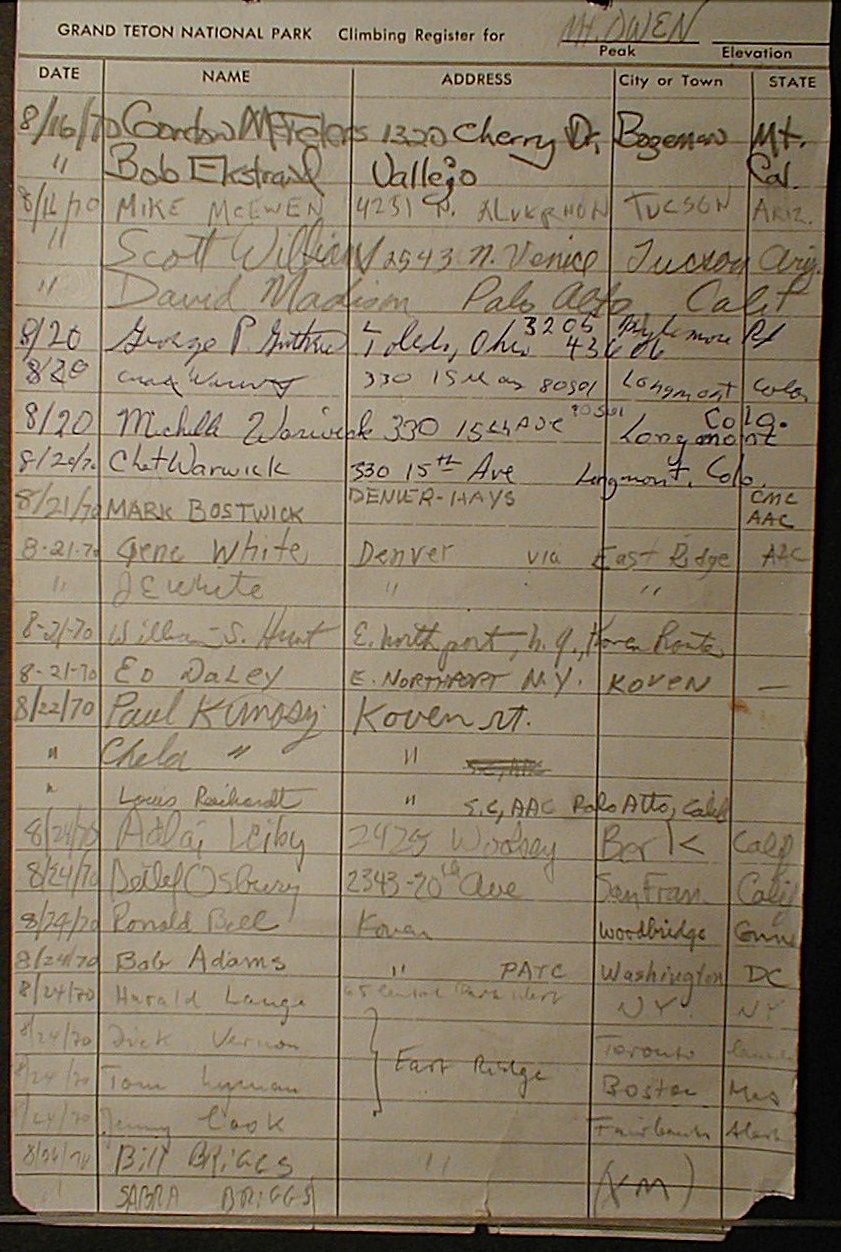 GRAND TETON NATIONAL PARK Climbing Register for Mt. OWEN
Peak Elevation
DATE NAME ADDRESS City or Town STATE
8/16/70 Gordon McFeters 1320 Cherry Dr. Bozeman Mt.
" Bob Ekstrand Vallejo Cal.
8/16/70 MIKE McEWEN 4231 N. TUCSON ARIZ.
" Scott Williams 2543 N. Venice Tucson Ariz.
" David Madison Palo Alto Calif
8/20 George P. Guthrie Toledo, Ohio 3206 43606 Rd
8/20 330 15th Ave 80501 Longmont Colo.
8/20 Michelle Warwick 330 15th AVE 80501 Longmont Colo.
8/20/70 Chet Warwick 330 15th Ave Longmont, Colo.
8/21/70 MARK BOSTWICK DENVER-HAYS CMC
AAC
8-21-70 Gene White Denver via East Ridge AAC
" J E White " "
8-21-70 William S. Hunt E. Northport, N.Y., Koven Route
8-21-70 ED DALEY E. NORTHPORT N.Y. KOVEN —
8/22/70 Paul Koven rt.
" Chela " "
" Louis Reichardt " S.C, AAC Palo Alto, Calif
8/24/70 Leiby 2425 Woolsey Berk Calif
8/24/70 Detlef Osbury 2343-20th Ave San Fran. Calif
8/24/70 Ronald Bell Koven Woodbridge Conn
8/24/70 Bob Adams " PATC Washington DC
8/24/70 Harald Lange 65 Central Park West NY. NY
8/24/70 Dick Vernon Toronto
8/24/70 Tom Lyman East Ridge Boston Mas
8/24/70 Jenny Cook Fairbanks Alask
8/26/70 Bill BRIGGS " (XM)
" SABRA BRIGGS